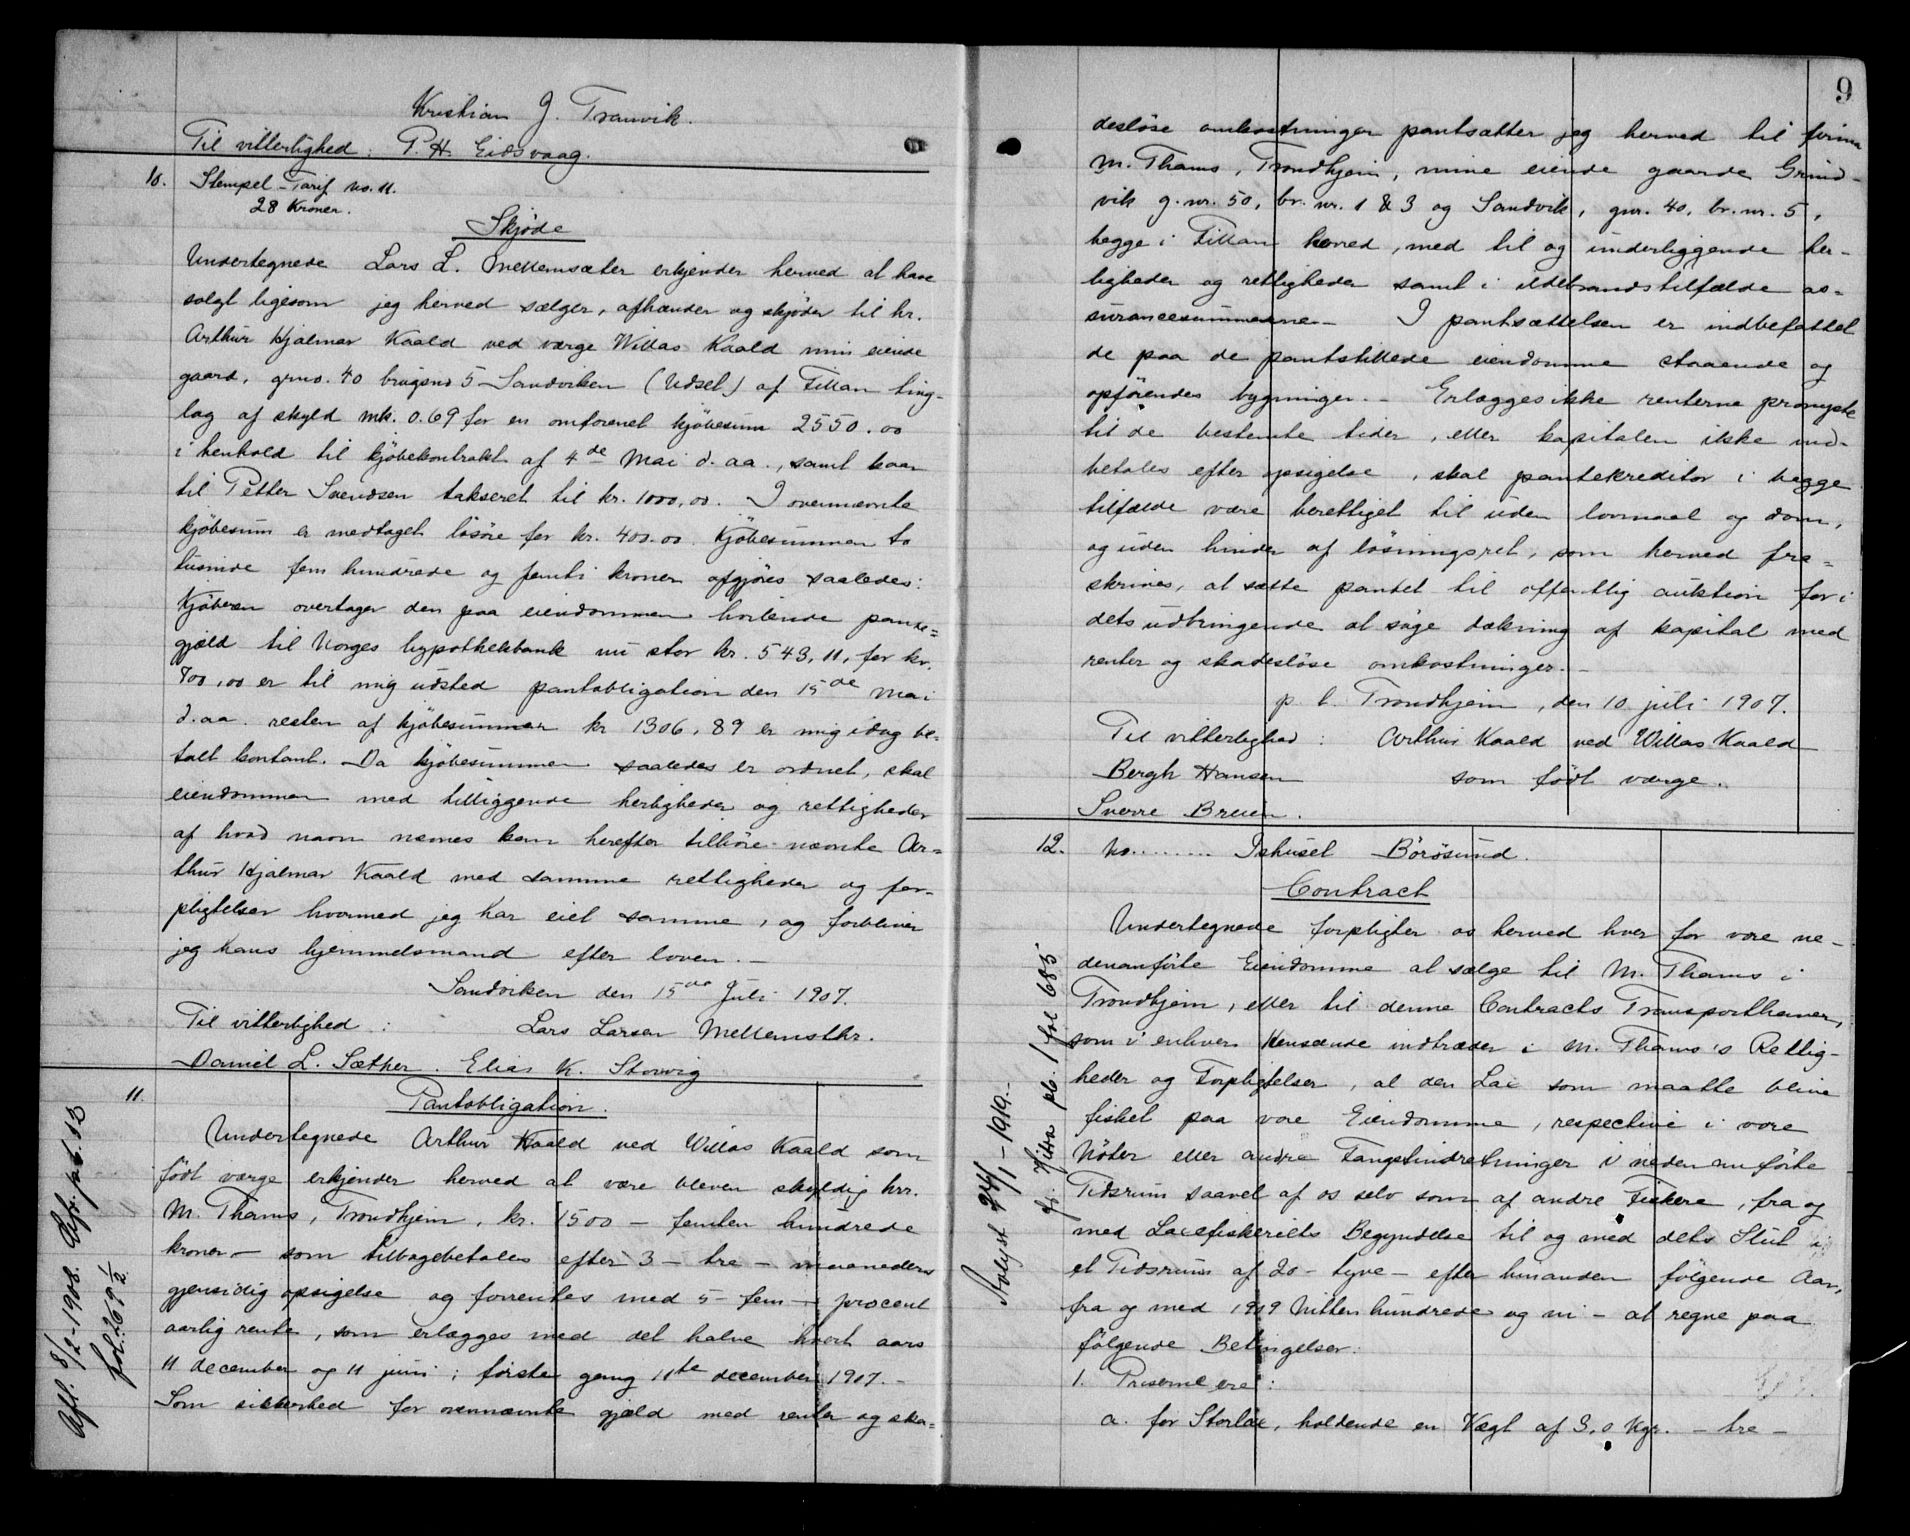 Kristian J. Tranvik.
Til vitterlighed: P. H. Eidsvaag.
10. Stempel-Tarif no. 11.
28 Kroner.
Skjøde
Undertegnede Lars L. Mellemsæter erkjender herved at have
solgt ligesom jeg herved sælger, afhænder og skjøder til hr.
Arthur Hjalmar Kaald ved værge Willas Kaald min eiende
gaard, grno. 40 brugsno 5 Sandviken (Udsel) af Fillan ting-
lag af skyld mk. 0.69 for en omforenet kjöbesum 2550.00
i henhold til kjöbekontrakt af 4de Mai d. aa., samt kaar
til Petter Svendsen takseret til kr. 1000,00. I ovennævnte
kjöbesum er medtaget lösöre for kr. 400.00. Kjöbesummen to
tusinde fem hundrede og femti kroner afgjöres saaledes:
Kjöberen overtager den paa eiendommen heftende pante=
gjæld til Norges hypothekbank nu stor kr. 543,11, for kr.
700,00 er til mig udsted pantobligation den 15de Mai
d. aa. resten af kjöbesummen kr 1306,89 er mig idag be-
talt kontant. Da kjöbesummen saaledes er ordnet, skal
eiendommen med tilliggende herligheder og rettigheder
af hvad navn nævnes kan herefter tilhöre nævnte Ar=
thur Hjalmar Kaald med samme rettigheder og for-
pligtelser hvormed jeg har eiet samme, og forbliver
jeg hans hjemmelsmand efter loven. –
Sandviken den 15de Juli 1907.
Til vitterlighed: Lars Larsen Mellemsthr.
Daniel L. Sæther. Elias K. Storvig
11. Pantobligation.
Undertegnede Arthur Kaald ved Willas Kaald som
födt værge erkjender herved at være bleven skyldig hrr.
M. Thams, Trondhjem, kr. 1500 – femten hundrede
kroner – som tilbagebetales efter 3 – tre – maaneders
gjensidig opsigelse og forrentes med 5 – fem – procent
aarlig rente, som erlægges med det halve hvert aars
11 december og 11 juni; förste gang 11te december 1907. –
Som sikkerhed for ovennævnte gjæld med renter og ska=
Afl. 8/2-1908.
fol. 269 1/2
9
deslöse omkostninger pantsætter jeg herved til firma
M. Thams, Trondhjem, mine eiende gaarde Grind-
vik g.nr. 50, br. nr. 1 & 3 og Sandvik, gnr. 40, br. nr. 5,
begge i Fillan herred, med til og underliggende her-
ligheder og rettigheder samt i ildebrandstilfælde as=
surancesummerne – I pantsættelsen er indbefattet
de paa de pantstillede eiendomme staaende og
opförendes bygninger. – Erlægges ikke renterne promptе
til de bestemte tider, eller kapitalen ikke ind-
betales efter opsigelse, skal pantekreditor i begge
tilfælde være berettiget til uden lovmaal og dom,
og uden hinder af lösningsret, som herved fra=
skrives, at sætte pantet til offentlig auktion for i
dets udbringende at söge dækning af kapital med
renter og skadeslöse omkostninger. –
p. t. Trondhjem, den 10 juli 1907.
Til vitterlighed: Arthur Kaald ved Willas Kaald
Bergh Hansen som födt værge.
Sverre Breien.
12. No......... Ishuset Börösund.
Contract
Undertegnede forpligter os herved hver for vore ne-
denanförte Eiendomme at sælge til M. Thams i
Trondhjem, eller til denne Contracts Transporthaver,
som i enhver Henseende indtræder i M. Thams's Rettig-
heder og Forpligtelser, al den Lax som maatte blive
fisket paa vore Eiendomme, respective i vore
Nöter eller andre Fangstindretninger i nedenanförte
Tidsrum saavel af os selv som af andre Fiskere, fra og
med Laxefiskeriets Begyndelse til og med dets Slut i
et Tidsrum af 20 – tyve – efter hinanden fölgende Aar,
fra og med 1909 Nittenhundrede og ni – at regne paa
fölgende Betingelser:
1. Priserne ere:
a. for Storlax, holdende en Vægt af 3,0 Kgr. – tre –
Avlyst 24/1-1919. –
fr. Hitra pb. 1 fol 685